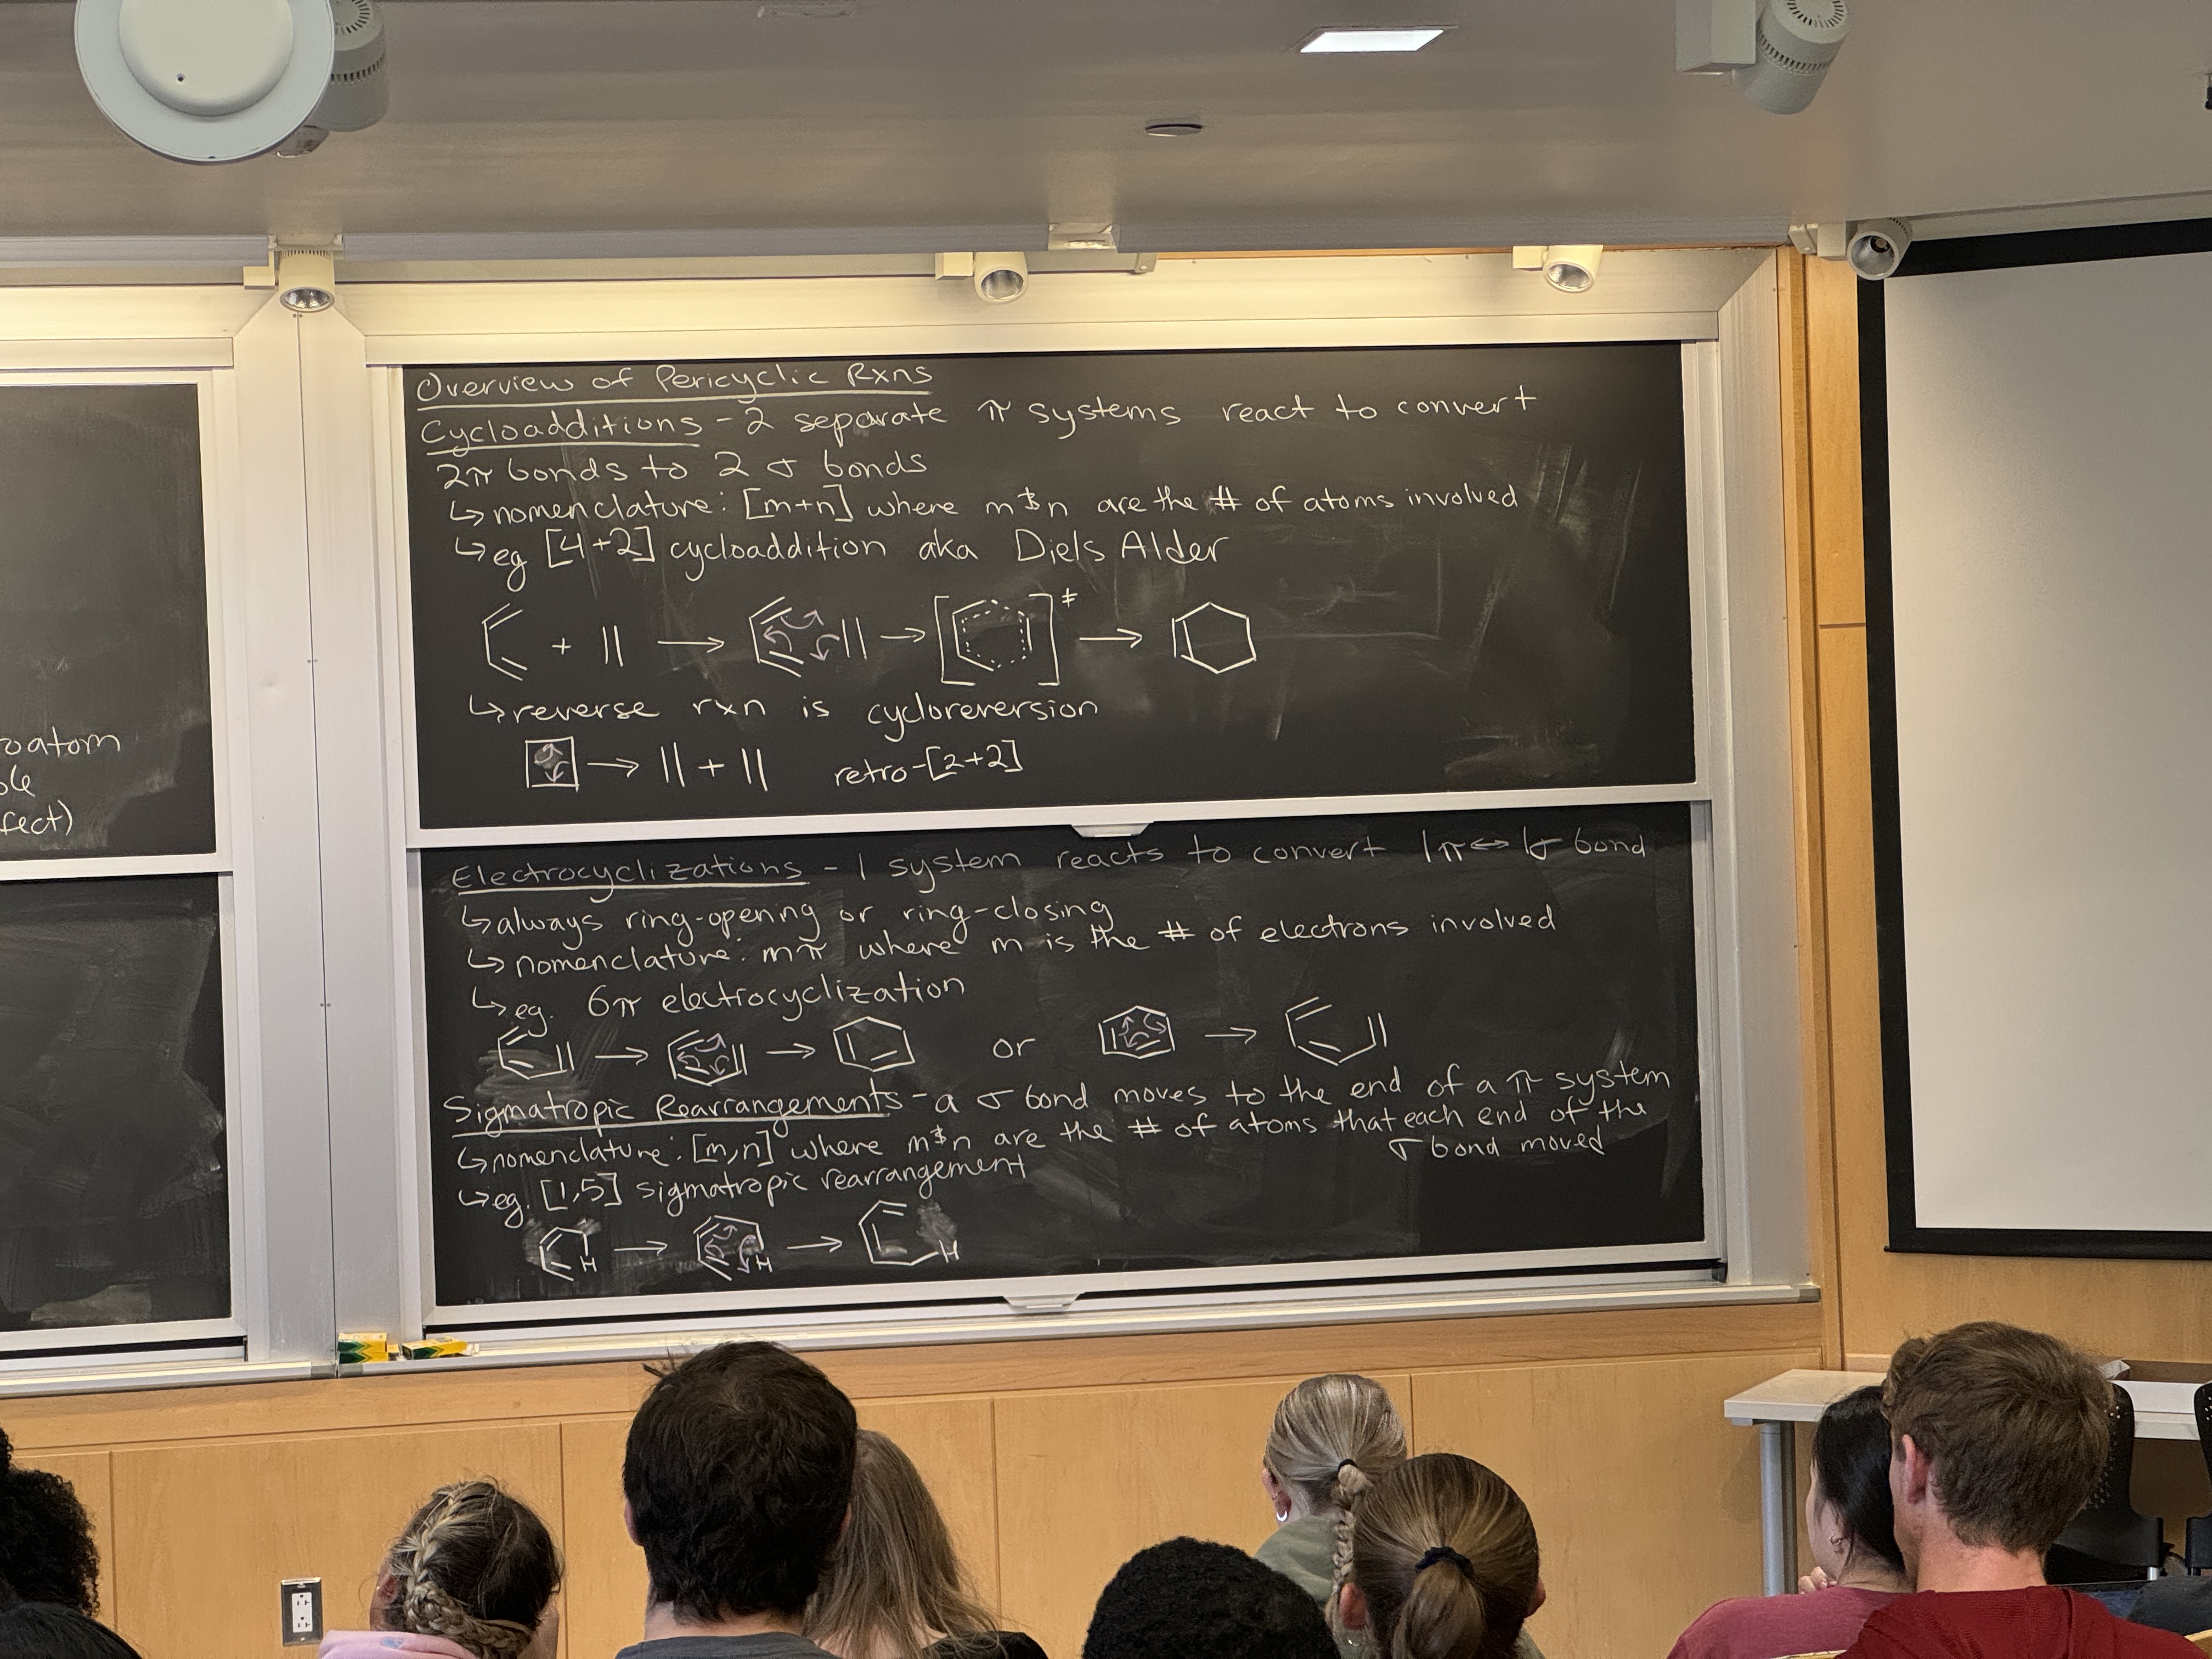 Overview of Pericyclic Rxns
Cycloadditions - 2 separate π systems react to convert
2π bonds to 2 σ bonds
↳ nomenclature: [m+n] where m & n are the # of atoms involved
↳ eg [4+2] cycloaddition aka Diels Alder
+ → → [ ]‡ →
↳ reverse rxn is cycloreversion
→ || + || retro-[2+2]
oatom
ole
fect)
Electrocyclizations - 1 system reacts to convert 1π ↔ 1σ bond
↳ always ring-opening or ring-closing
↳ nomenclature: mπ where m is the # of electrons involved
↳ eg. 6π electrocyclization
→ → or →
Sigmatropic Rearrangements - a σ bond moves to the end of a π system
↳ nomenclature: [m,n] where m & n are the # of atoms that each end of the
σ bond moved
↳ eg. [1,5] sigmatropic rearrangement
H → H → H